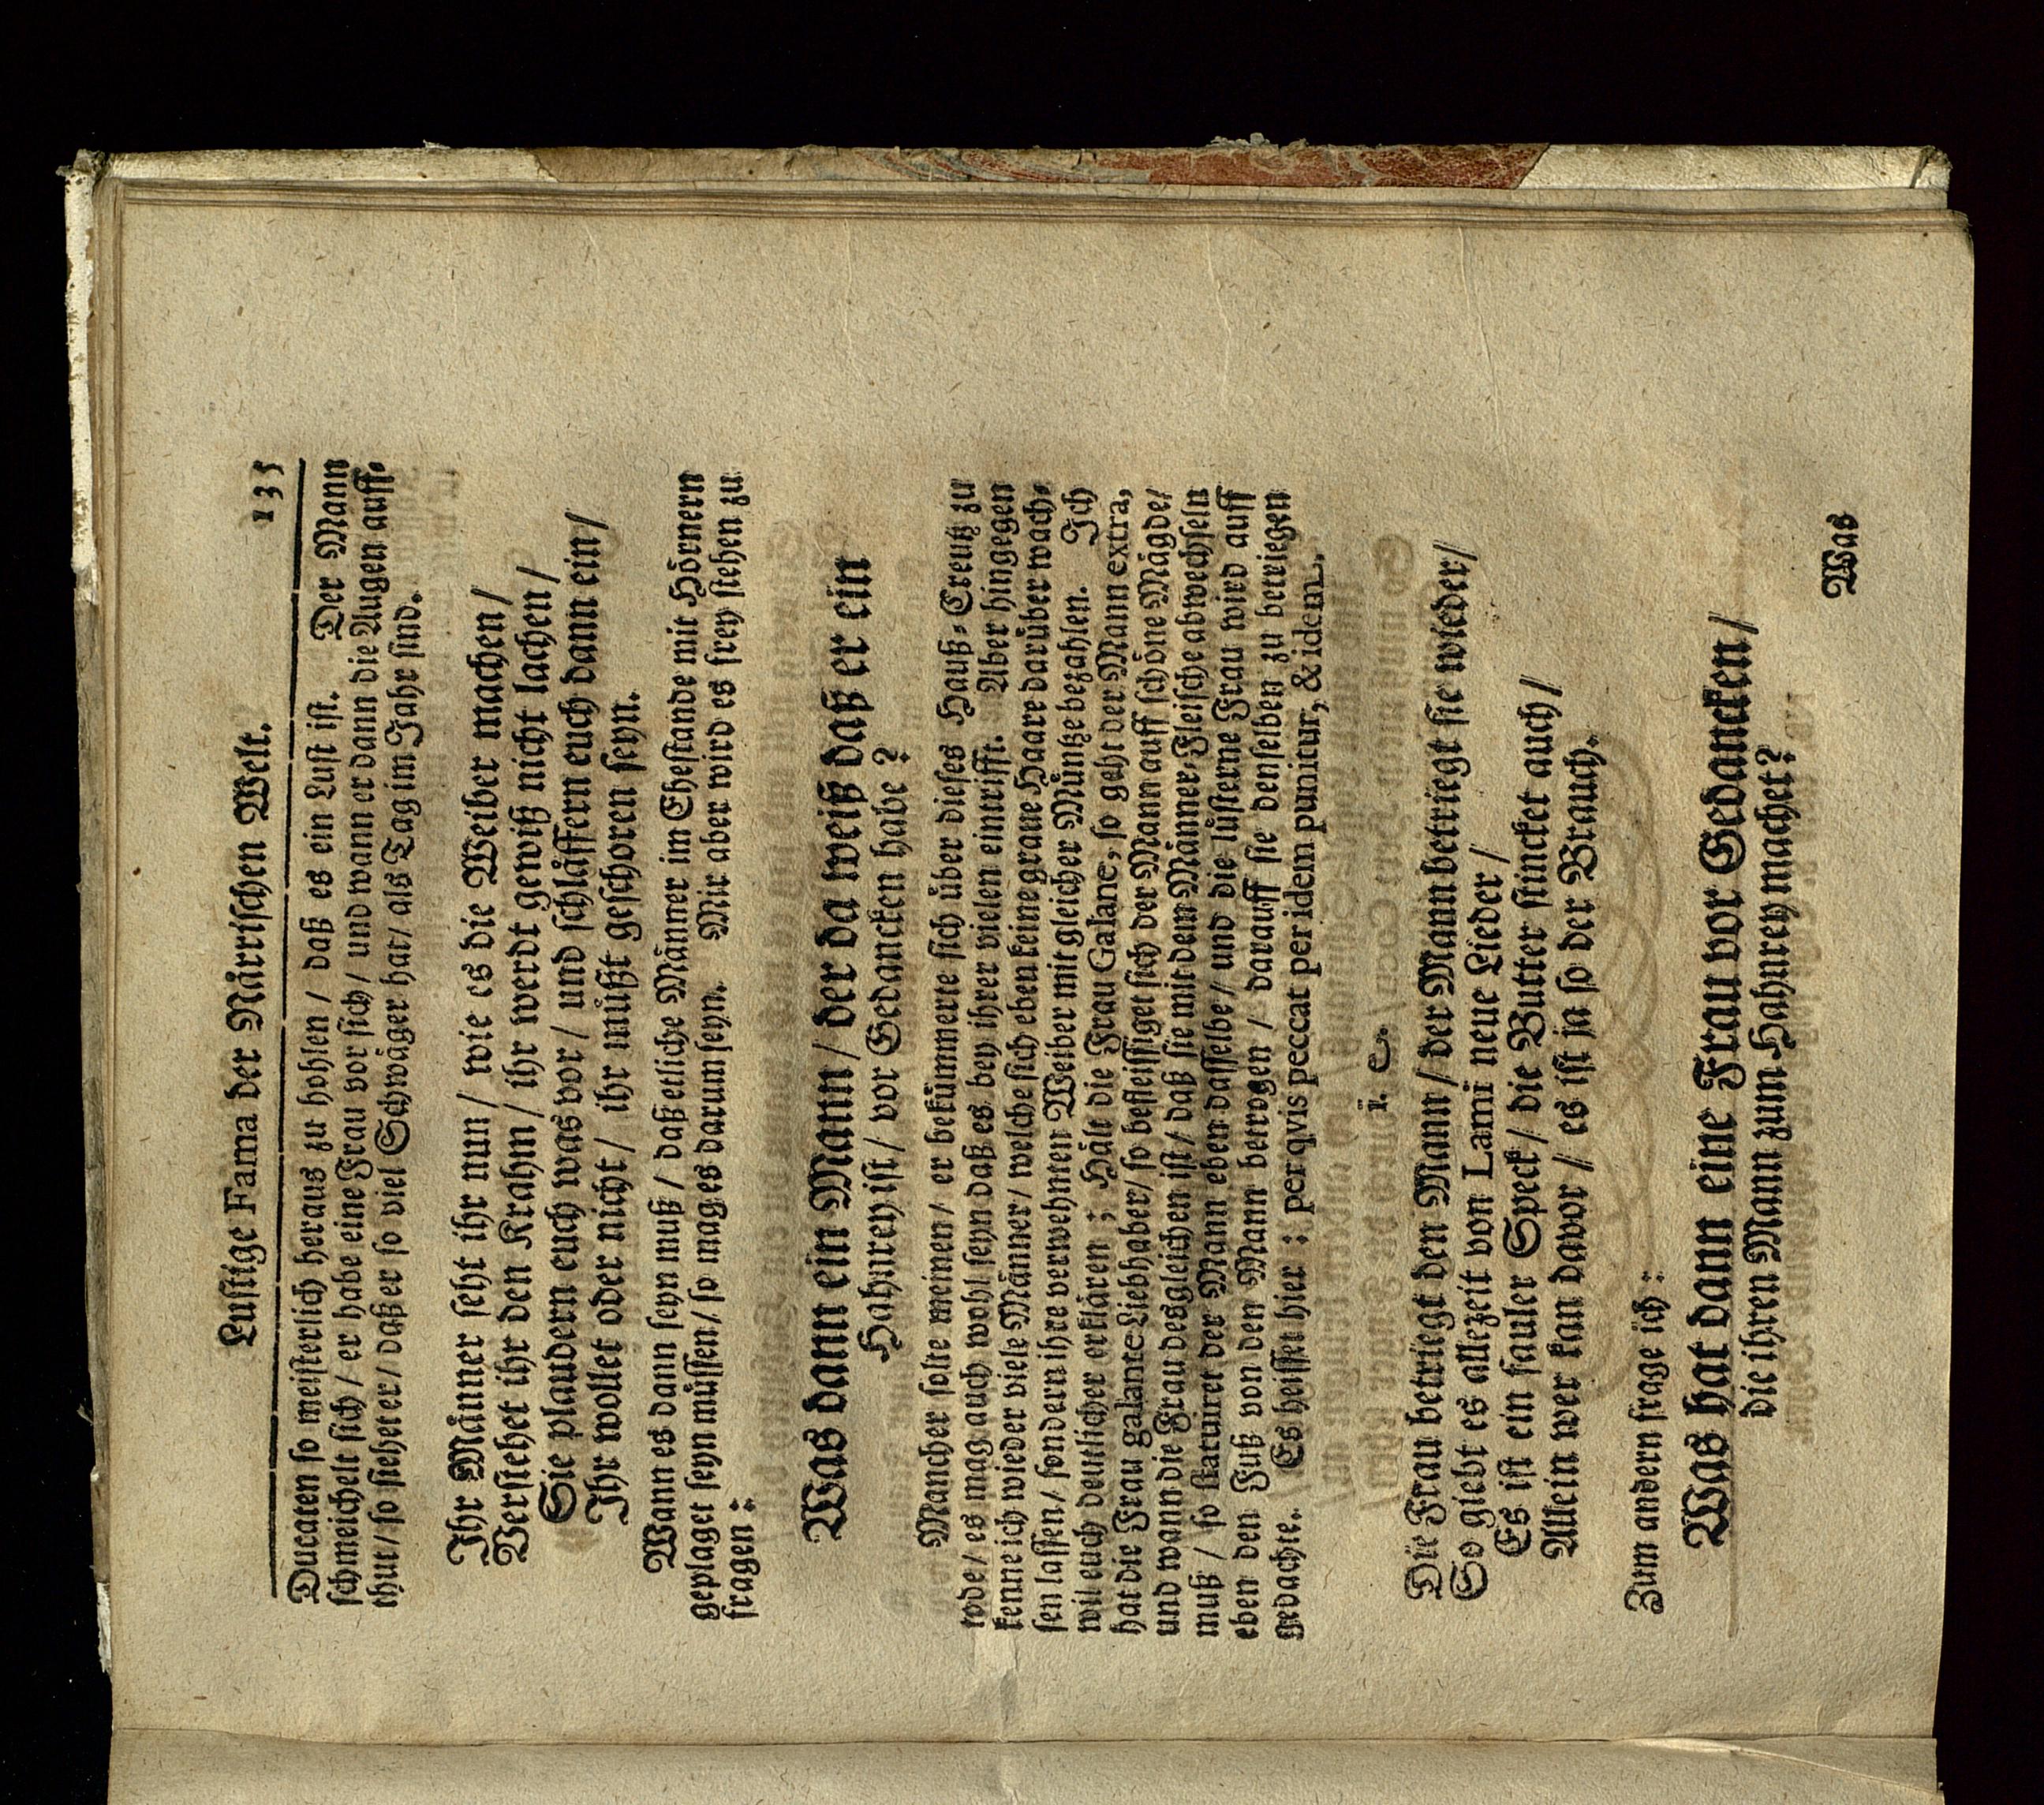 Lustige Fama der Närrischen Welt. 135
Ducaten so meisterlich heraus zu hohlen / daß es ein Lust ist. Der Mann
schmeichelt sich / er habe eine Frau vor sich / und wann er dann die Augen auff-
thut / so siehet er / daß er so viel Schwäger hat / als Tag im Jahr sind.
Ihr Männer seht ihr nun / wie es die Weiber machen /
Verstehet ihr den Krahm / ihr werdt gewiß nicht lachen /
Sie plaudern euch was vor / und schläffern euch dann ein /
Ihr wollet oder nicht / ihr müßt geschoren seyn.
Wann es dann seyn muß / daß etliche Männer im Ehestande mit Hörnern
geplaget seyn müssen / so mag es darum seyn. Mir aber wird es frey stehen zu
fragen :
Was dann ein Mann / der da weiß daß er ein
Hahnrey ist / vor Gedancken habe ?
Mancher solte meinen / er bekümmerte sich über dieses Hauß-Creutz zu
tode / es mag auch wohl seyn daß es bey ihrer vielen eintrifft. Aber hingegen
kenne ich wieder viele Männer / welche sich eben keine graue Haare darüber wach-
sen lassen / sondern ihre verwehnten Weiber mit gleicher Müntze bezahlen. Ich
will euch deutlicher erklären ; Hält die Frau Galane, so geht der Mann extra,
hat die Frau galante Liebhaber / so befleissiget sich der Mann auff schöne Mägde /
und wann die Frau desgleichen ist / daß sie mit dem Männer-Fleische abwechseln
muß / so statuiret der Mann eben dasselbe / und die lüsterne Frau wird auff
eben den Fuß von den Mann betrogen / darauff sie denselben zu betriegen
gedachte. Es heisset hier : per qvis peccat per idem punitur, & idem.
i. e.
Die Frau betriegt den Mann / der Mann betriegt sie wieder /
So giebt es allezeit von Lami neue Lieder /
Es ist ein fauler Speck / die Butter stincket auch /
Allein wer kan davor / es ist ja so der Brauch.
Zum andern frage ich :
Was hat dann eine Frau vor Gedancken /
die ihren Mann zum Hahnrey machet?
Was